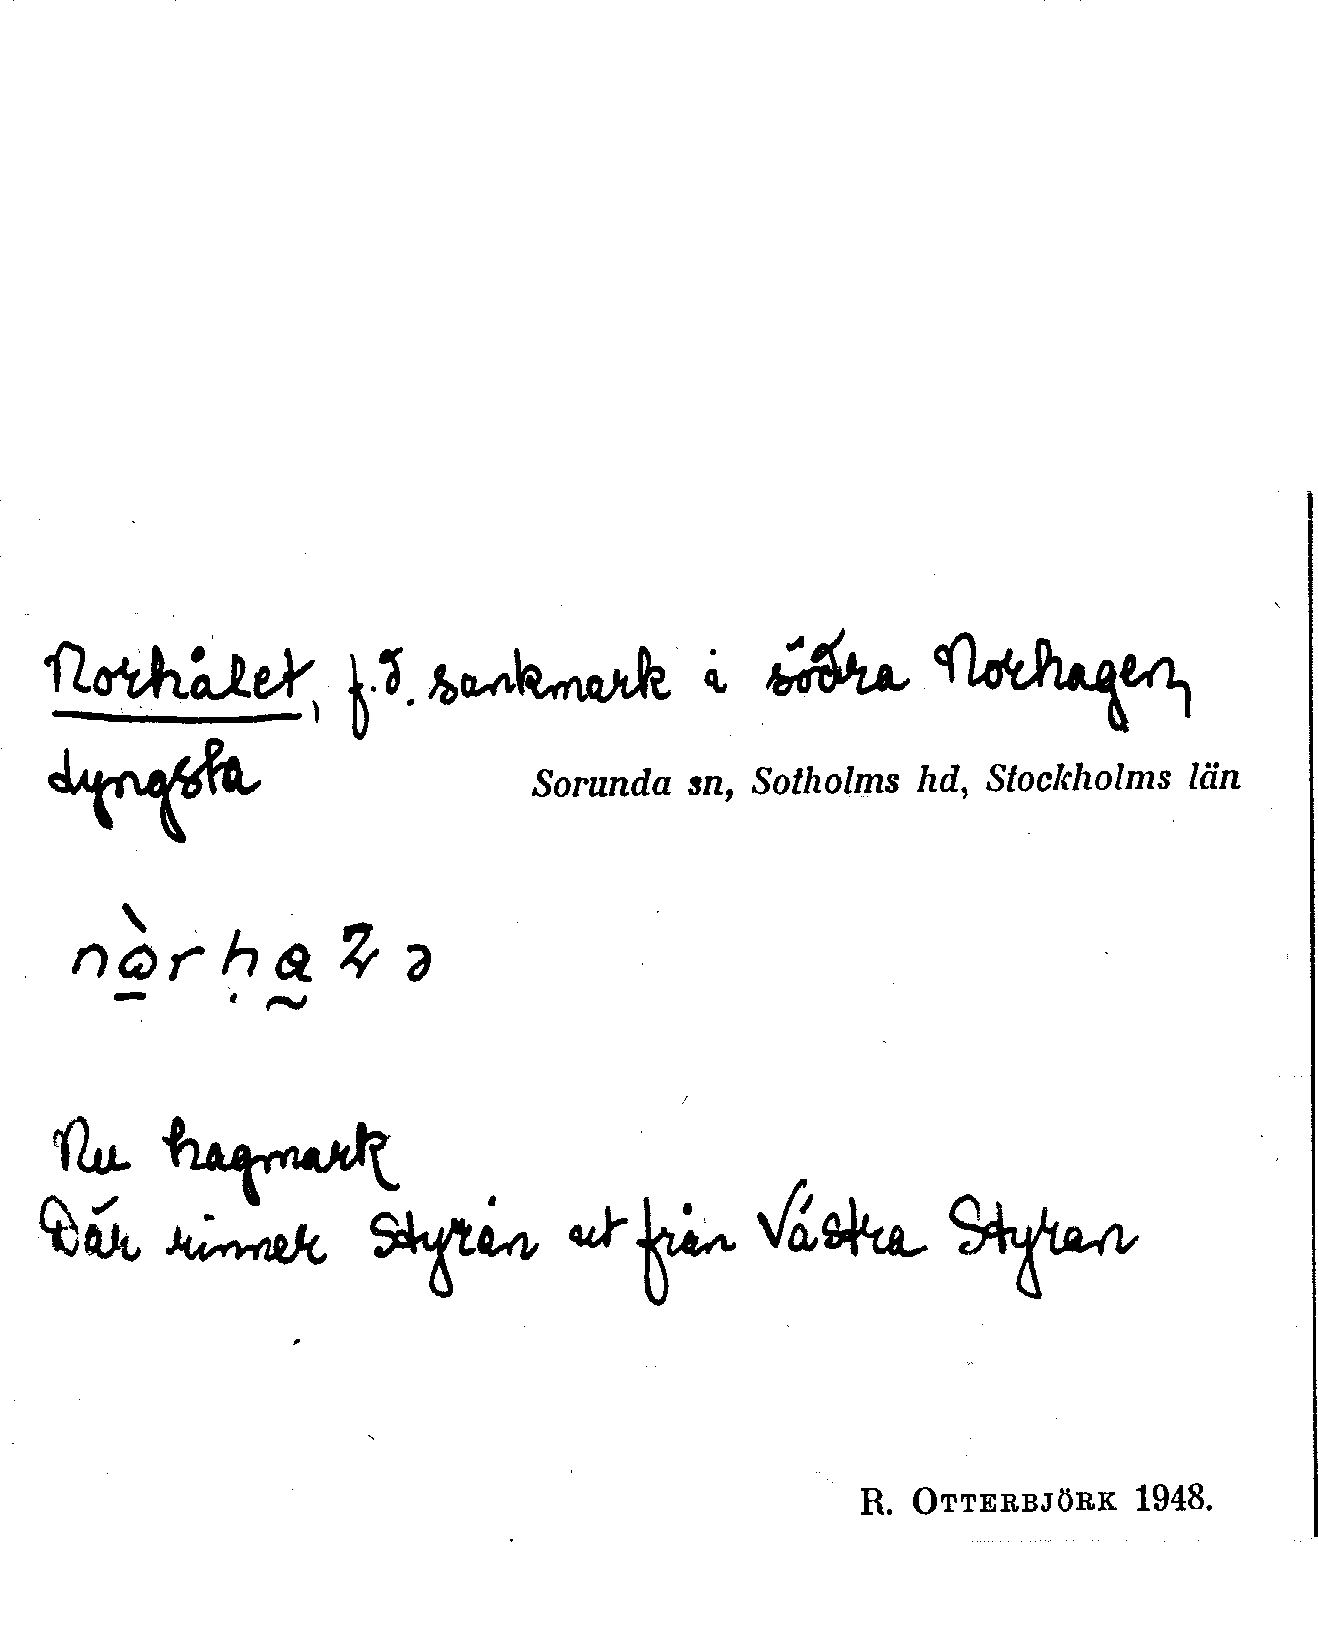 Norhålet, f.d. sankmark i södra Norhagen,
Lyngsta
Sorunda sn, Sotholms hd, Stockholms län
Nu hagmark
Där rinner Styrån ut från Västra Styran
R. OTTERBJÖRK 1948.